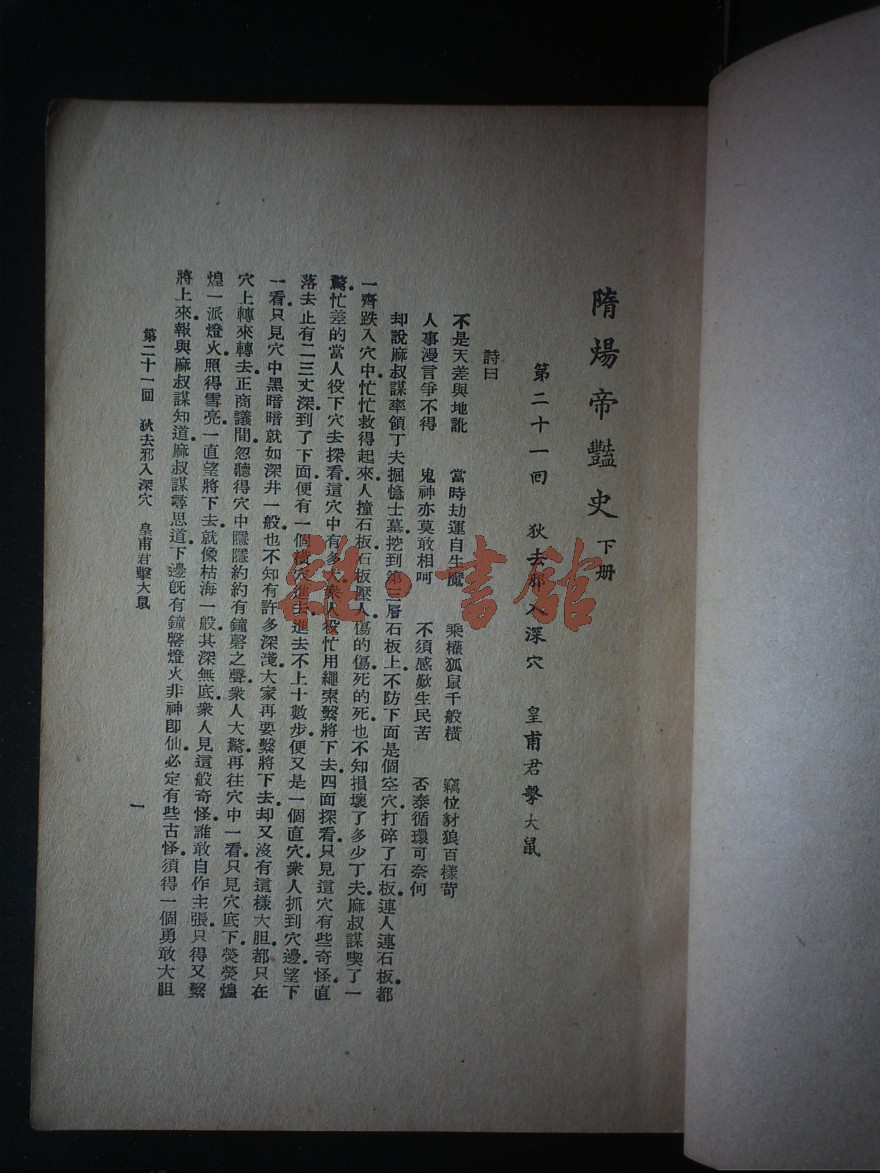 隋煬帝豔史 下册
第二十一回 狄去邪入深穴 皇甫君擊大鼠
詩曰
不是天差與地訛 當時劫運自生魔 乘權狐鼠千般橫 竊位豺狼百樣苛
人事漫言爭不得 鬼神亦莫敢相呵 不須感歎生民苦 否泰循環可奈何
却說麻叔謀率領丁夫掘隱士墓挖到第三層石板上不防下面是個空穴打碎了石板連人連石板都
一齊跌入穴中忙忙救得起來人撞石板石板壓人傷的傷死的死也不知損壞了多少丁夫麻叔謀喫了一
驚忙差的當人役下穴去探看這穴中有多大衆人役忙用繩索繫將下去四面探看只見這穴有些奇怪直
落去止有二三丈深到了下面便有一個橫穴進去進去不上十數步便又是一個直穴衆人抓到穴邊望下
一看只見穴中黑暗暗就如深井一般也不知有許多深淺大家再要繫將下去却又沒有這樣大胆都只在
穴上轉來轉去正商議間忽聽得穴中隱隱約約有鐘磬之聲衆人大驚再往穴中一看只見穴底下熒熒煌
煌一派燈火照得雪亮一直望將下去就像枯海一般其深無底衆人見這般奇怪誰敢自作主張只得又繫
將上來報與麻叔謀知道麻叔謀尋思道下邊旣有鐘磬燈火非神卽仙必定有些古怪須得一個勇敢大胆
第二十一回 狄去邪入深穴 皇甫君擊大鼠
一
雜·書館